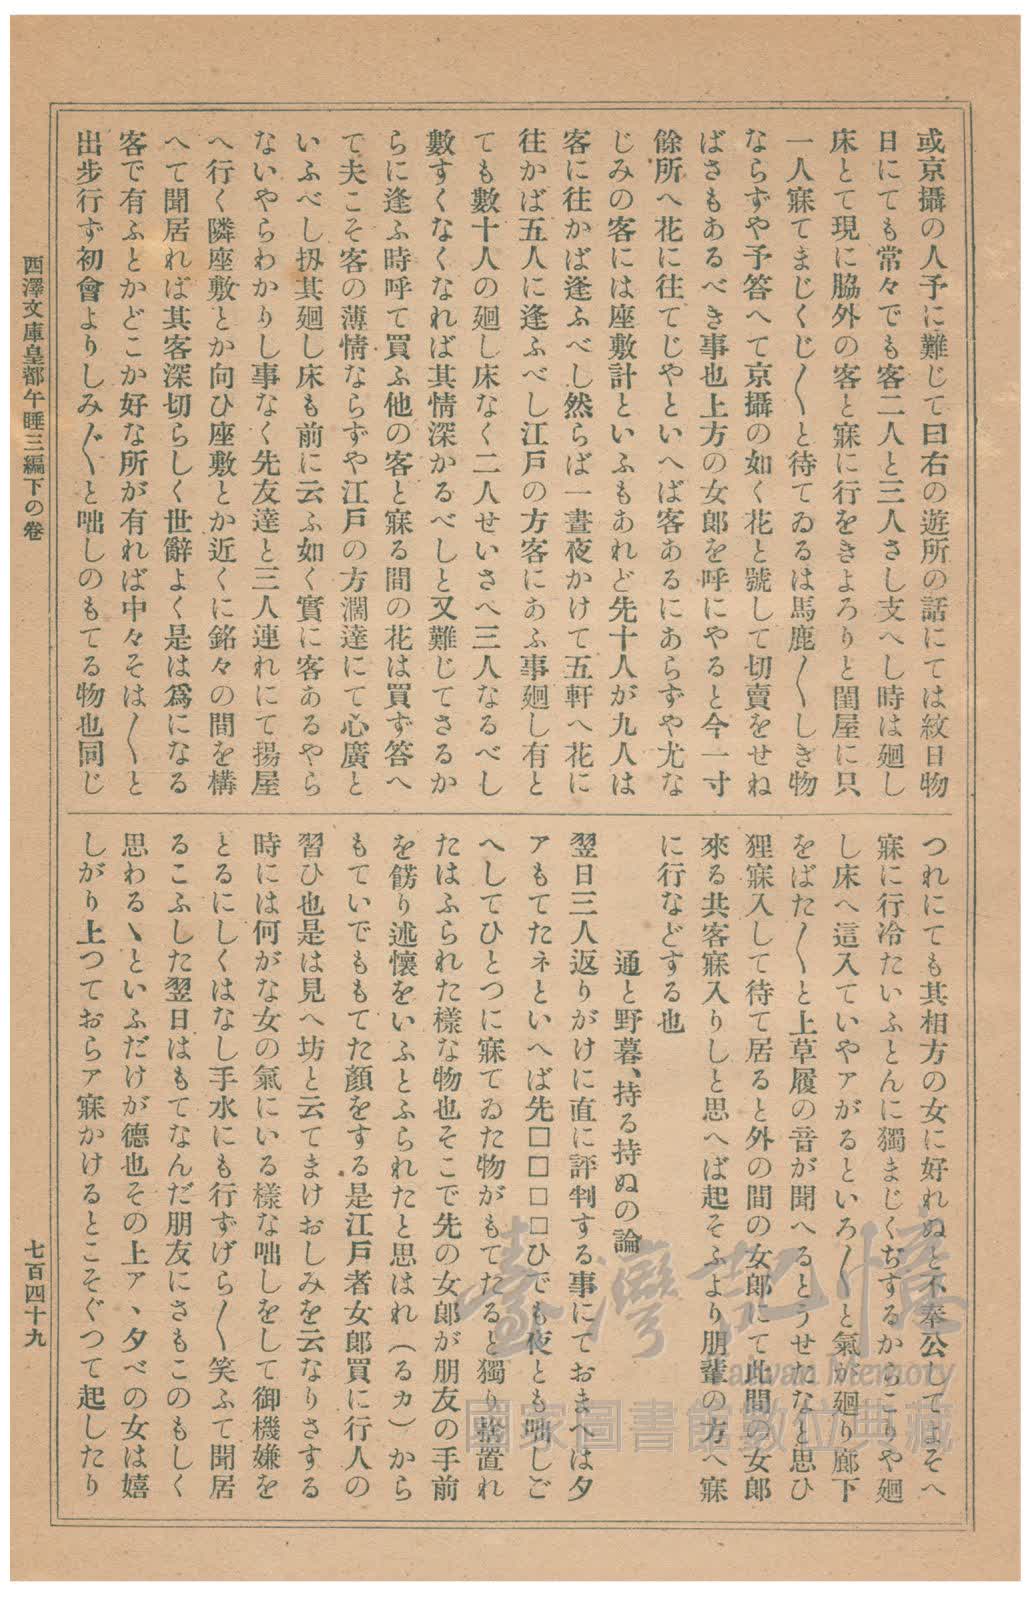 或京攝の人予に難じて曰右の遊所の話にては紋日物
日にても常々でも客二人と三人さし支へし時は廻し
床とて現に脇外の客と寐に行をきよろりと閨屋に只
一人寐てまじくじ〳〵と待てゐるは馬鹿〳〵しき物
ならずや予答へて京攝の如く花と號して切賣をせね
ばさもあるべき事也上方の女郎を呼にやると今一寸
餘所へ花に往てじやといへば客あるにあらずや尤な
じみの客には座敷計といふもあれど先十人が九人は
客に往かば逢ふべし然らば一晝夜かけて五軒へ花に
往かば五人に逢ふべし江戸の方客にあふ事廻し有と
ても數十人の廻し床なく二人せいさへ三人なるべし
數すくなくなれば其情深かるべしと又難じてさるか
らに逢ふ時呼て買ふ他の客と寐る間の花は買ず答へ
て夫こそ客の薄情ならずや江戸の方濶達にて心廣と
いふべし扨其廻し床も前に云ふ如く實に客あるやら
ないやらわかりし事なく先友達と三人連れにて揚屋
へ行く隣座敷とか向ひ座敷とか近くに銘々の間を構
へて聞居れば其客深切らしく世辭よく是は爲になる
客で有ふとかどこか好な所が有れば中々そは〳〵と
出步行ず初會よりしみ〴〵と咄しのもてる物也同じ
つれにても其相方の女に好れぬと不奉公してよそへ
寐に行冷たいふとんに獨まじくぢするからこりや廻
し床へ這入ていやァがるといろ〳〵と氣が廻り廊下
をばた〳〵と上草履の音が聞へるとうせたなと思ひ
狸寐入して待て居ると外の間の女郎にて此間の女郎
來る共客寐入りしと思へば起そふより朋輩の方へ寐
に行などする也
通と野暮、持る持ぬの論
翌日三人返りがけに直に評判する事にておまへは夕
アもてたネといへば先□□□□ひでも夜とも咄しご
へしてひとつに寐てゐた物がもてたると獨り捨置れ
たはふられた樣な物也そこで先の女郎が朋友の手前
を餝り述懷をいふとふられたと思はれ(るカ)から
もていでももてた顏をする是江戸者女郎買に行人の
習ひ也是は見へ坊と云てまけおしみを云なりさする
時には何がな女の氣にいる樣な咄しをして御機嫌を
とるにしくはなし手水にも行ずげら〳〵笑ふて聞居
るこふした翌日はもてなんだ朋友にさもこのもしく
思わるヽといふだけが德也その上アヽ夕べの女は嬉
しがり上つておらァ寐かけるとこそぐつて起したり
西澤文庫皇都午睡三編下の卷
七百四十九
臺灣記憶
Taiwan Memory
國家圖書館數位典藏